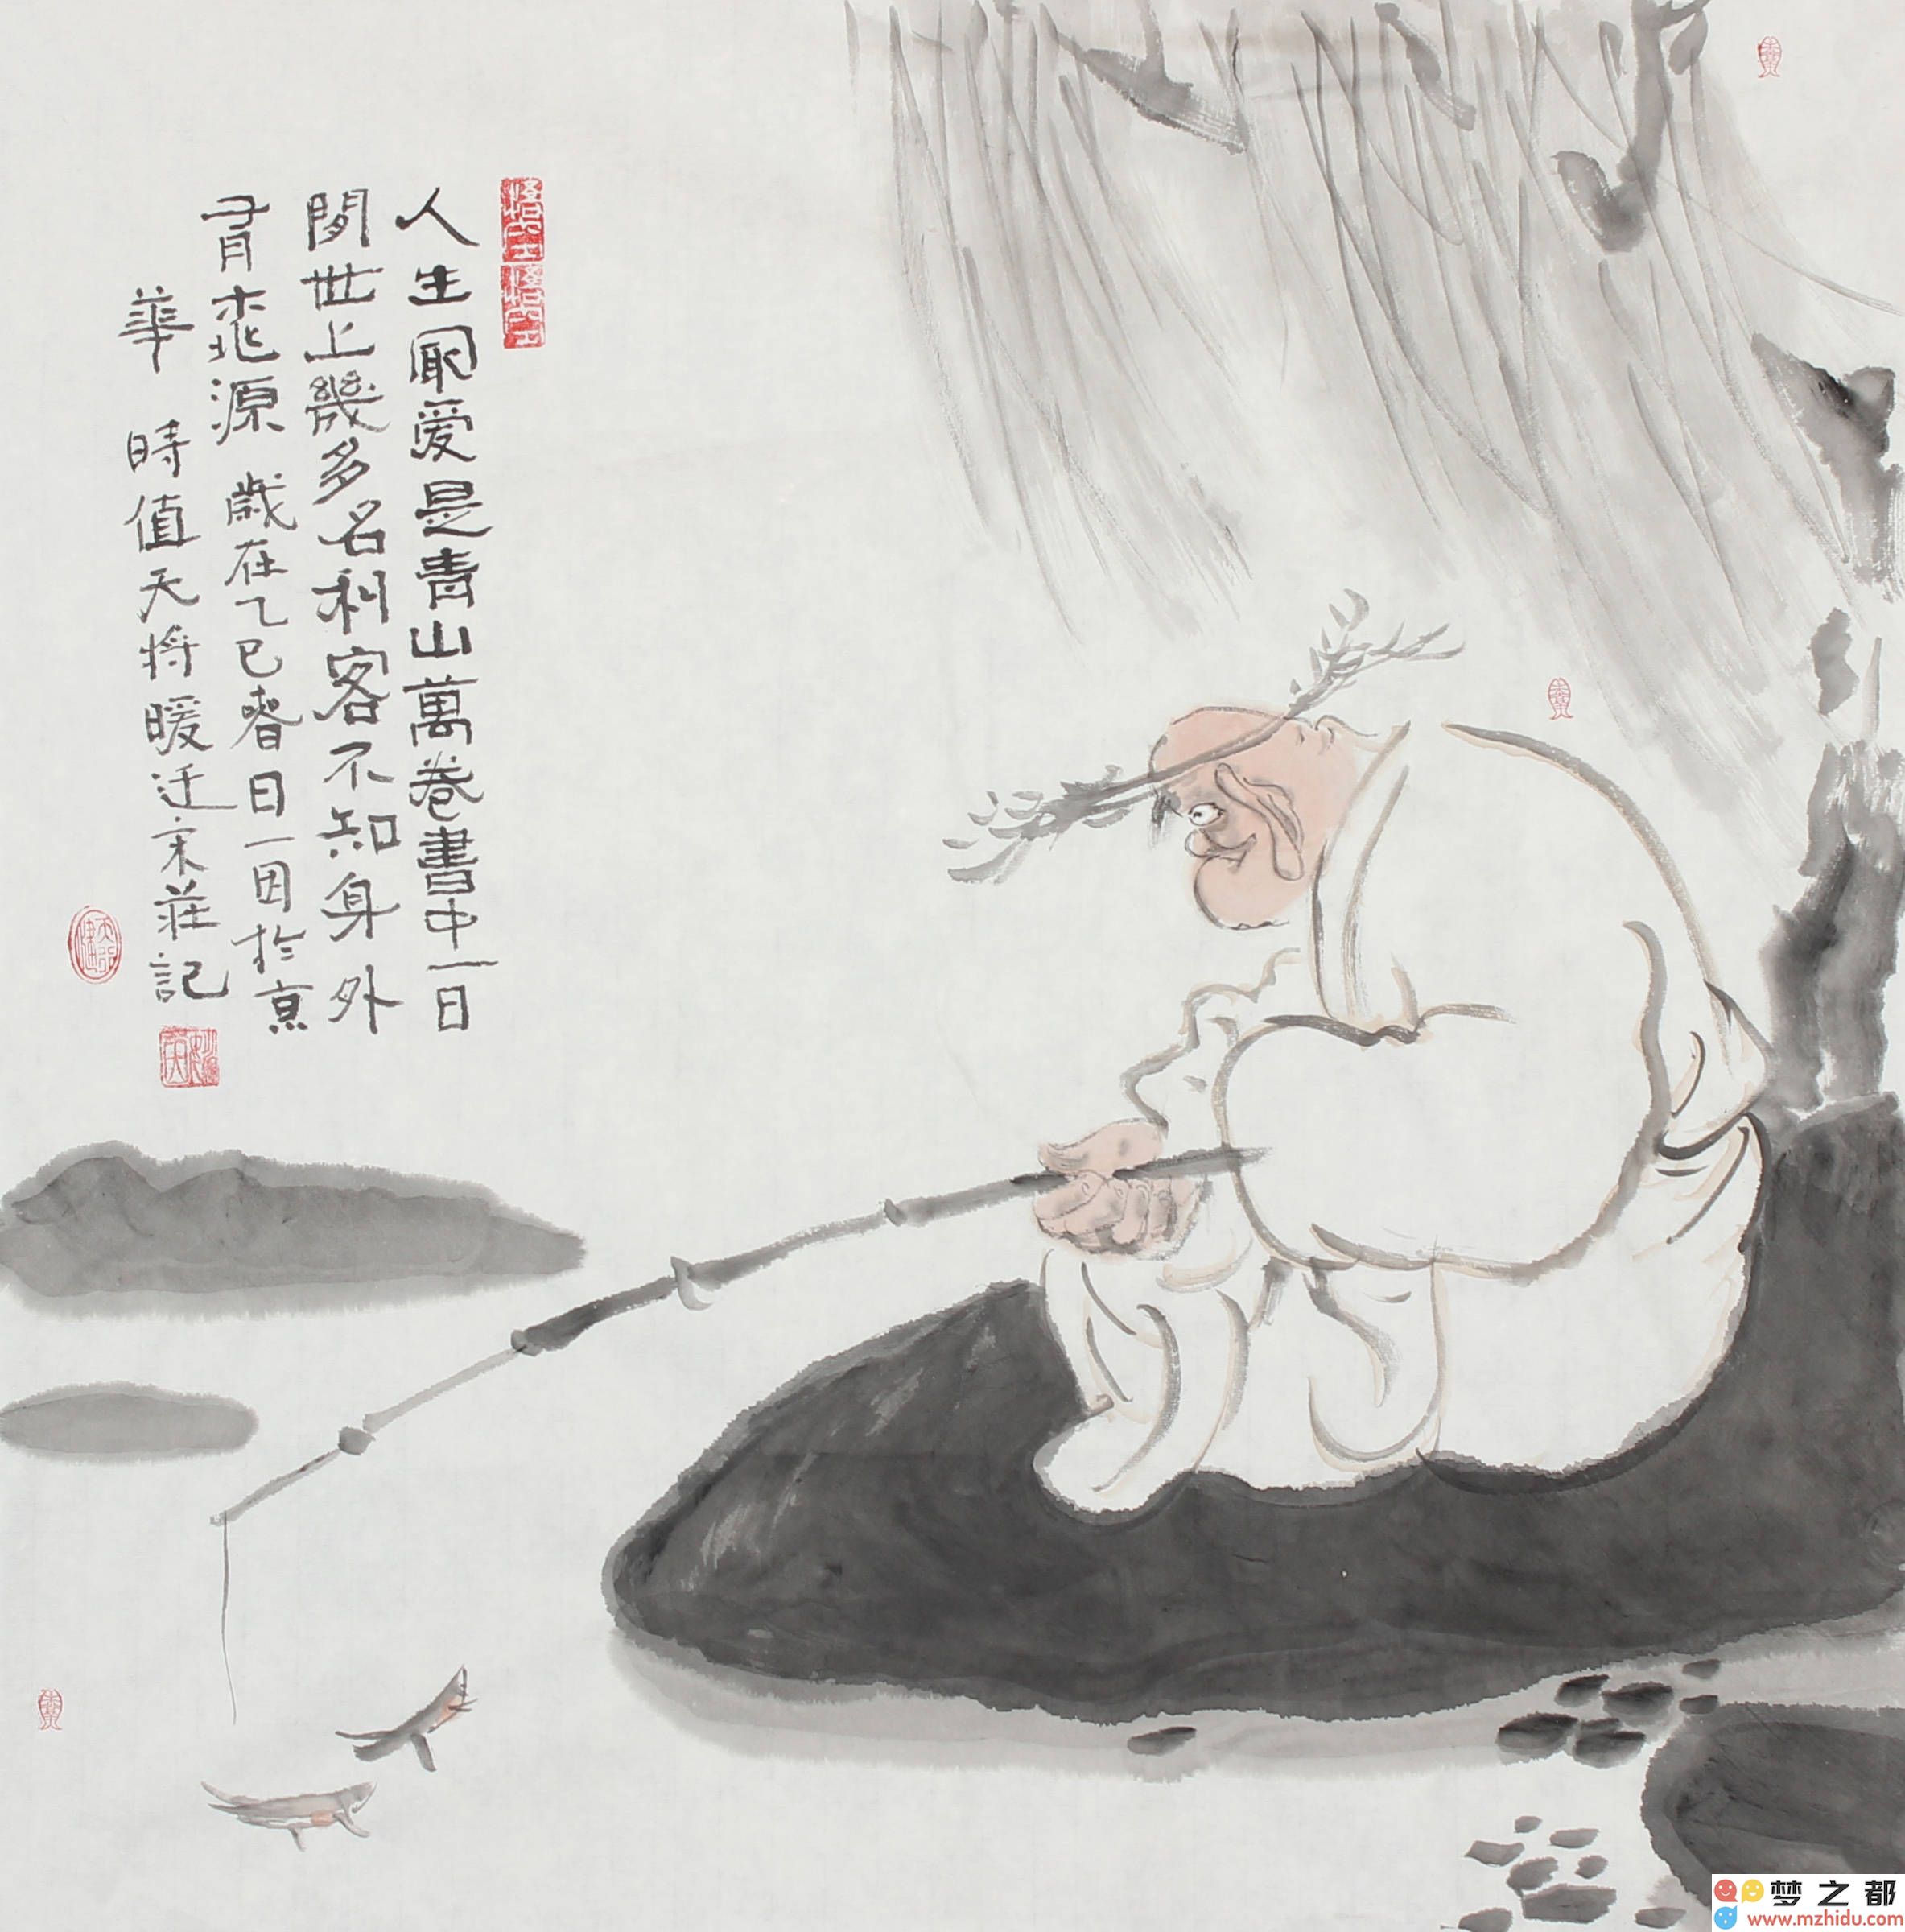 人生最爱是青山萬卷書中一日
閒世上幾多名利客不知身外
有桃源 歲在乙巳春日一因於京
華 時值天将暖迁宋莊記
梦之都
www.mzhidu.com